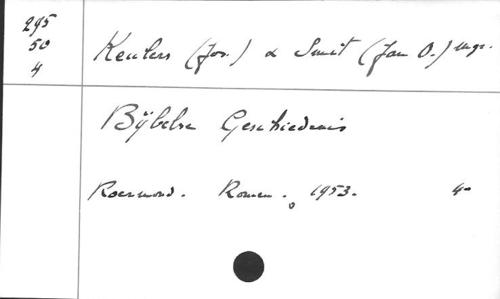 295
50
4
Keulers (Jos.) & Smit (Jan O.) Mgr.
Bijbelse Geschiedenis
Roermond. Romen. 1953. 4°